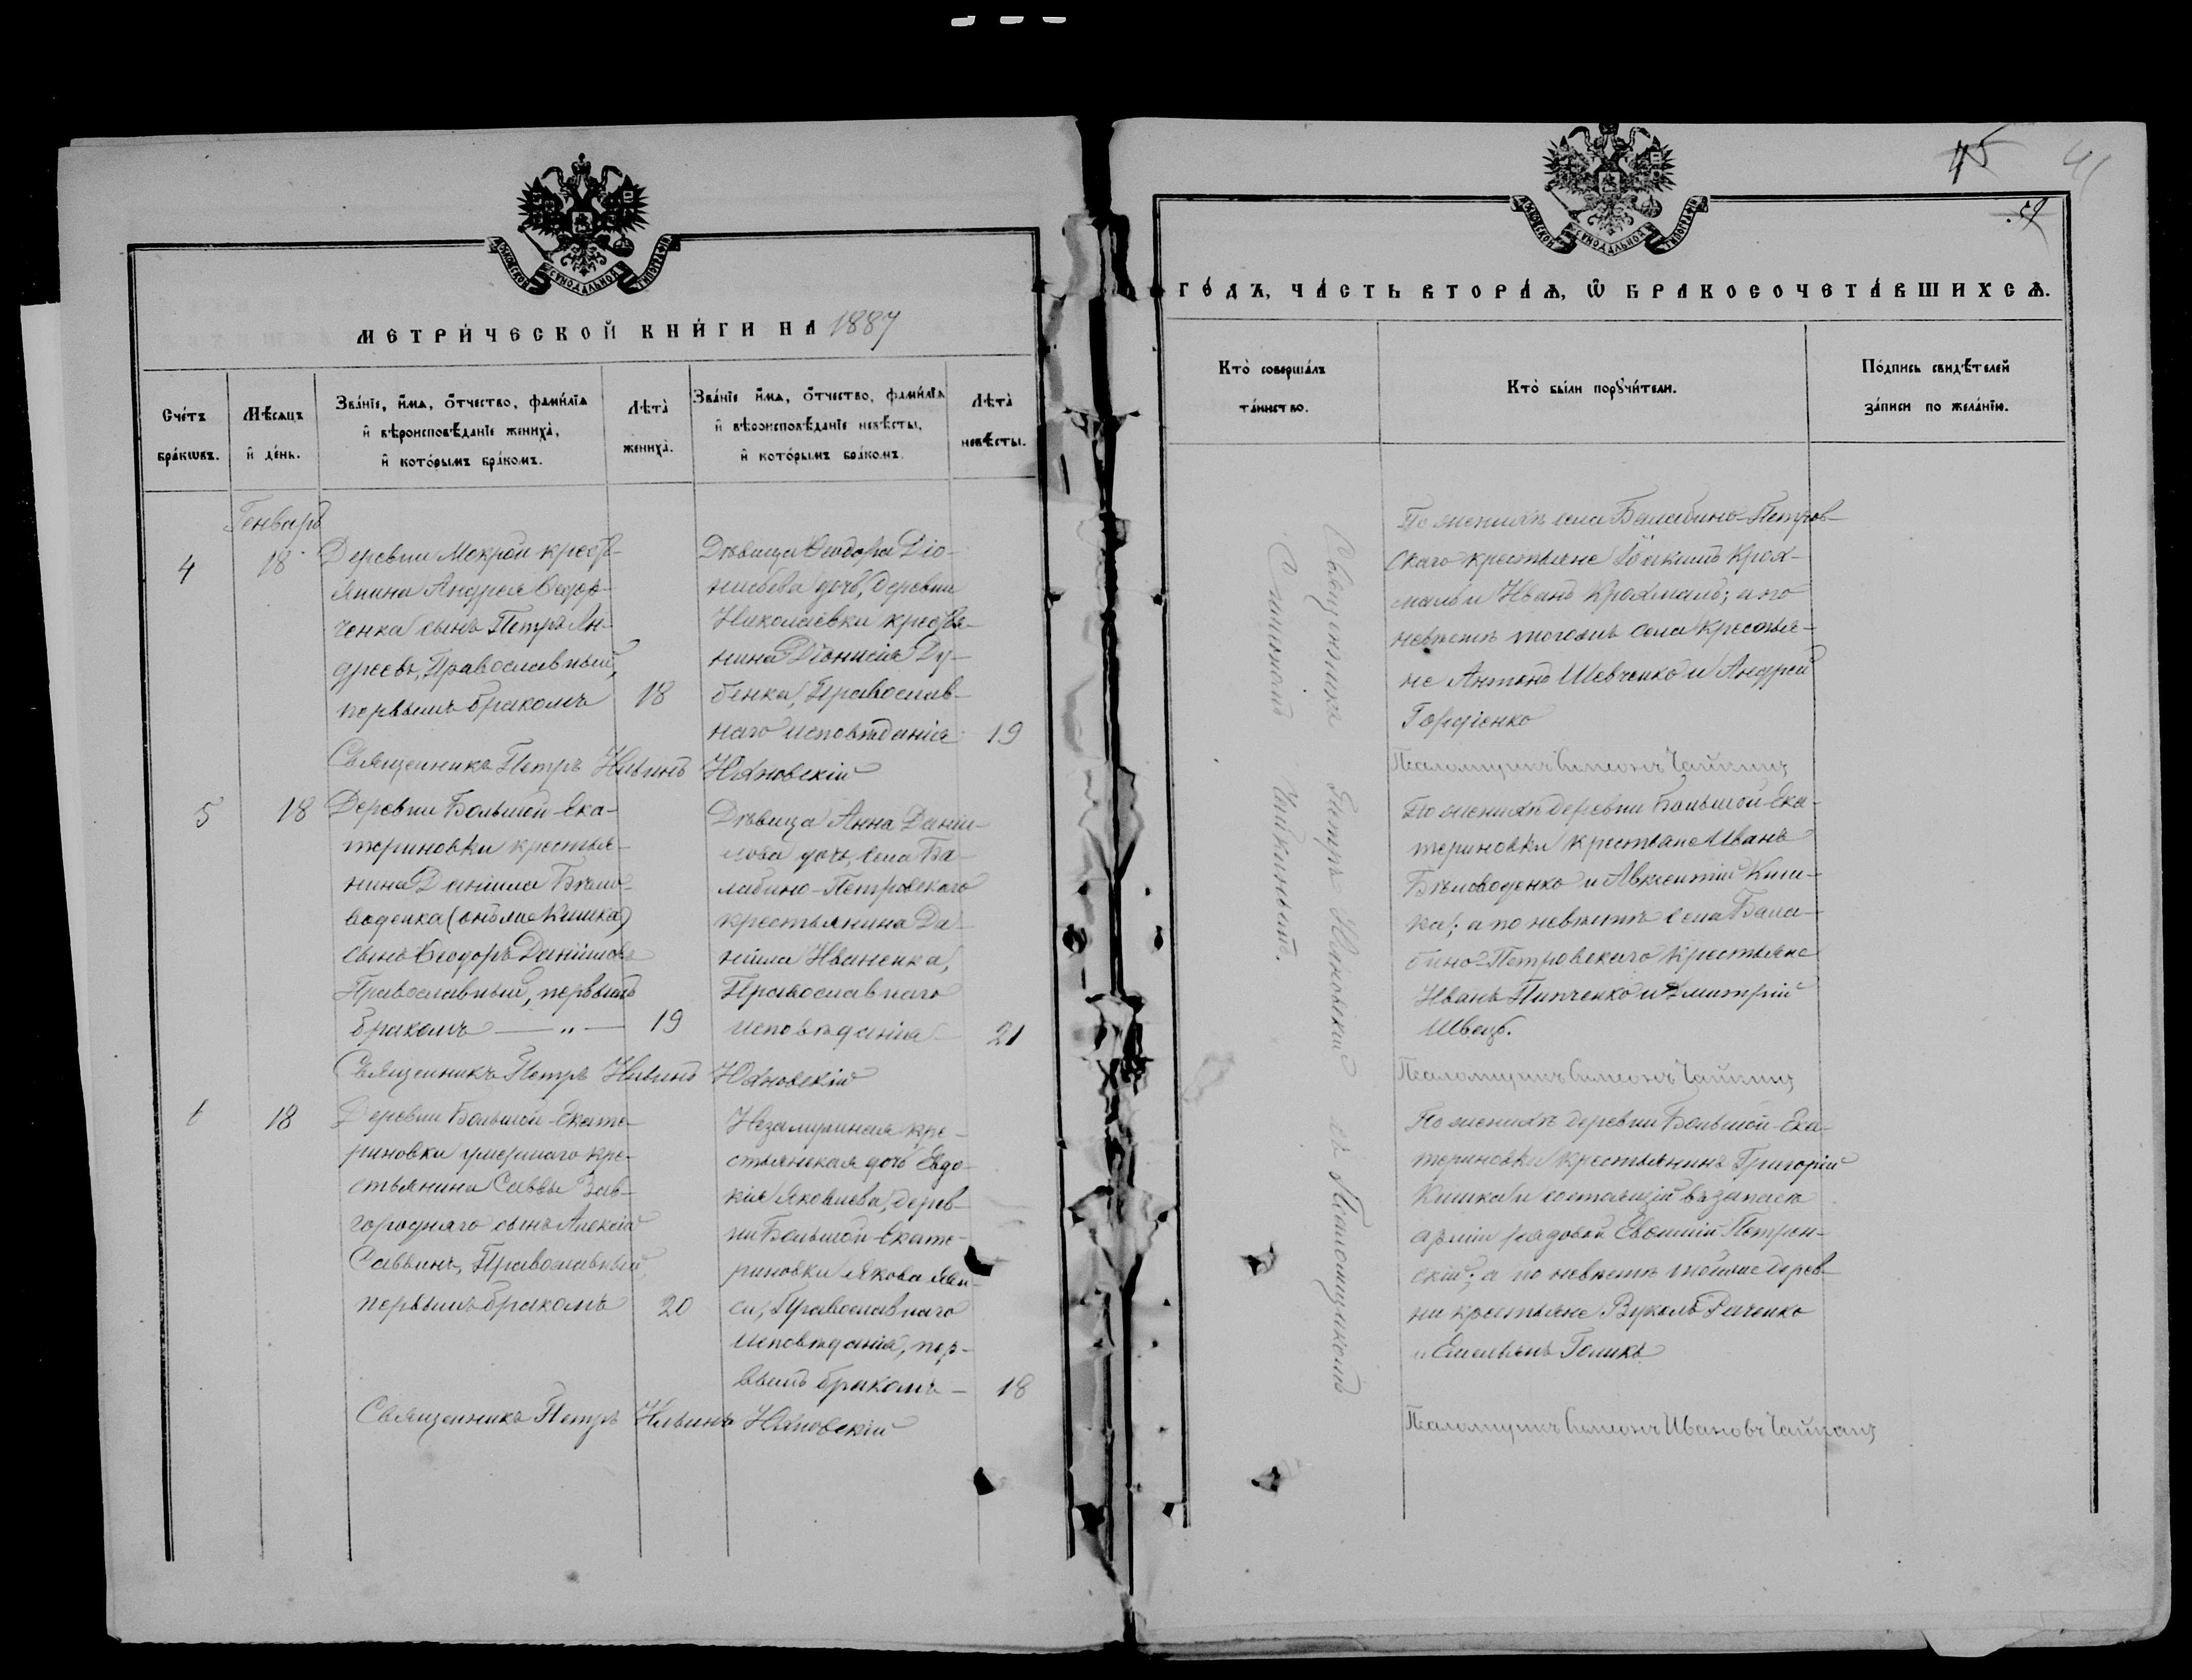 МОСКОВСКОЙ СѴНОДАЛЬНОЙ ТИПОГРАФІИ
МЕТРИ́ЧЕСКОЙ КНИ́ГИ НА 1887
Сче́тъ бра́кѡвъ.
Мѣ́сяцъ и҆ де́нь.
Зва́нїе, и҆́мѧ, ѻ҆́тчество, фами́лїѧ
и҆ вѣроисповѣ́данїе жениха̀,
и҆ кото́рымъ бра́комъ.
Лѣ́та̀ жениха̀.
Зва́нїе и҆́мѧ, ѻ҆́тчество, фами́лїѧ
и҆ вѣроисповѣ́данїе невѣ́сты,
и҆ кото́рымъ бра́комъ.
Лѣ́та̀ невѣ́сты.
Генварь
4
18
Деревни Мокрой кресть-
янина Андрея Ѳедор-
ченка сынъ Петръ Ан-
дреевъ, Православный,
первымъ бракомъ
18
Дѣвица Ѳеодора Діо-
нисіева дочь, деревни
Николаевки крестья-
нина Діонисія Ду-
бенка, Православ-
наго исповѣданія
19
Священникъ Петръ Ильинъ Юхновскій
5
18
Деревни Большой-Ека-
териновки крестья-
нина Даніила Бѣло-
воденка (онъ же Кишка)
сынъ Ѳеодоръ Даніиловъ
Православный, первымъ
бракомъ — „ —
19
Дѣвица Анна Даніи-
лова дочь, села Ба-
лабино-Петровскаго
крестьянина Да-
ніила Иваненка,
Православнаго
исповѣданія
21
Священникъ Петръ Ильинъ Юхновскій
6
18
Деревни Большой-Екате-
риновки умершаго кре-
стьянина Саввы Зав-
городняго сынъ Алексій
Саввинъ, Православный
первымъ бракомъ
20
Незамужняя кре-
стьянская дочь Евдо-
кія Яковлева, дерев-
ни Большой-Екате-
риновки Якова
Православнаго
исповѣданія, пер-
вымъ бракомъ —
18
Священникъ Петръ Ильинъ Юхновскій
45
41
МОСКОВСКОЙ СѴНОДАЛЬНОЙ ТИПОГРАФІИ
ГО́ДЪ, ЧА́СТЬ ВТОРА́Ѧ, Ѡ҆ БРАКОСОЧЕТА́ВШИХСѦ.
Кто̀ соверша́лъ
та́инство.
Кто̀ бы́ли порꙋчи́тели.
По́дпись свидѣ́телей
за́писи по жела́нїю.
Священникъ Петръ Юхновскій съ Псаломщикомъ
Симеономъ Чайкинымъ.
По женихѣ села Балабино-Петров-
скаго крестьяне Іоакимъ Крох-
маль и Иванъ Крохмаль; а по
невѣстѣ тогожъ села крестья-
не Антонъ Шевченко и Андрей
Гордіенко
Псаломщикъ Симеонъ Чайкинъ
По женихѣ деревни Большой-Ека-
териновки крестьяне Иванъ
Бѣловоденко и Авксентій Киш-
ка; а по невѣстѣ села Бала-
бино-Петровскаго крестьяне
Иванъ Пипченко и Димитрій
Швецъ.
Псаломщикъ Симеонъ Чайкинъ
По женихѣ деревни Большой-Ека-
териновки крестьянинъ Григорій
Кишка и состоящій въ запасѣ
арміи рядовой Евѳимій Петров-
скій; а по невѣстѣ тойже дерев-
ни крестьяне Вуколъ
и Емельянъ Голикъ
Псаломщикъ Симеонъ Ивановъ Чайкинъ